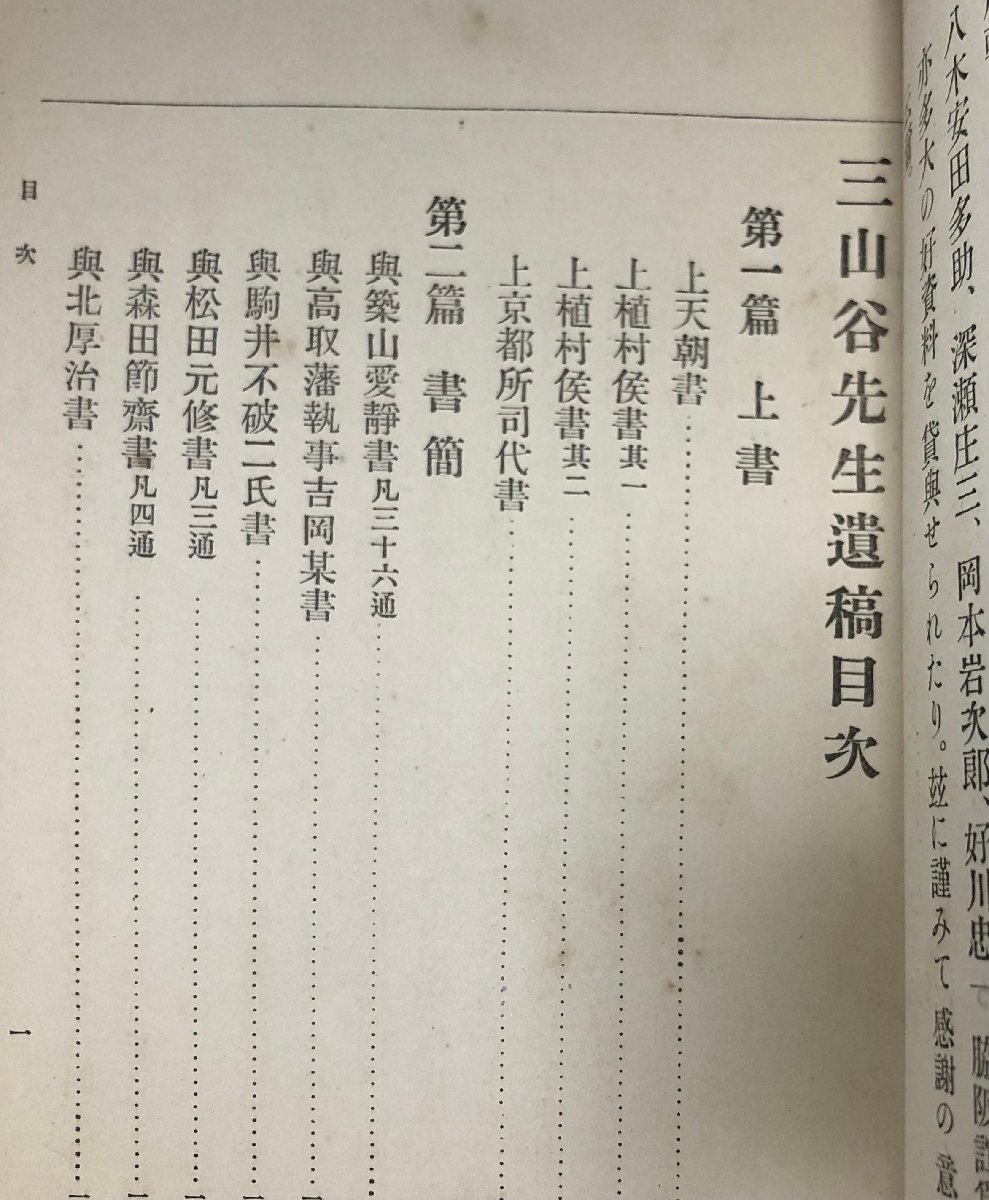 八木安田多助、深瀬庄三、岡本岩次郎、好川忠
亦多大の好資料を貸與せられたり。玆に謹みて感謝の意
三山谷先生遺稿目次
第一篇 上書
上天朝書
上植村侯書其一
上植村侯書其二
上京都所司代書
第二篇 書簡
與築山愛靜書凡三十六通
與高取藩執事吉岡某書
與駒井不破二氏書
與松田元修書凡三通
與森田節齋書凡四通
與北厚治書
目次
一